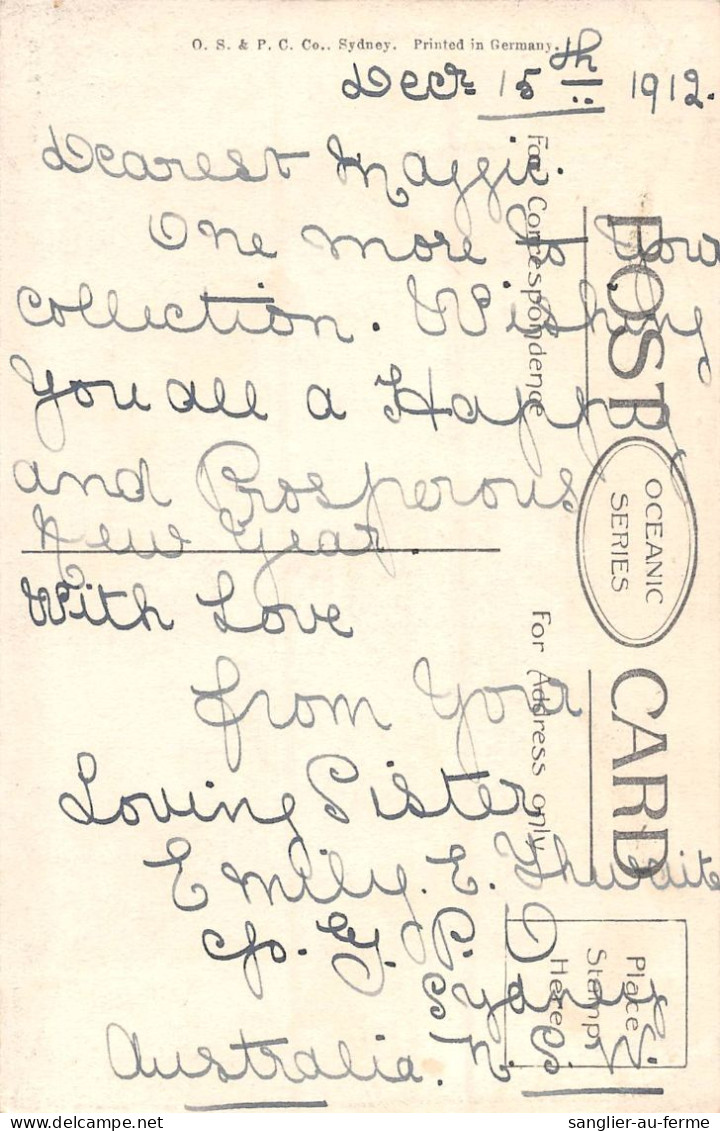 O. S. & P. C. Co., Sydney. Printed in Germany.
Decr 15th 1912.
Dearest Maggie.
One more to your
collection. Wishing
You all a Happy
and Prosperous
New Year.
With Love
from Your
Loving Sister
Emily. E.
c/o. G. P. O
Sydney.
Australia. N. S. W.
For Correspondence
For Address only
POST CARD
OCEANIC
SERIES
Place
Stamp
Here
sanglier-au-ferme